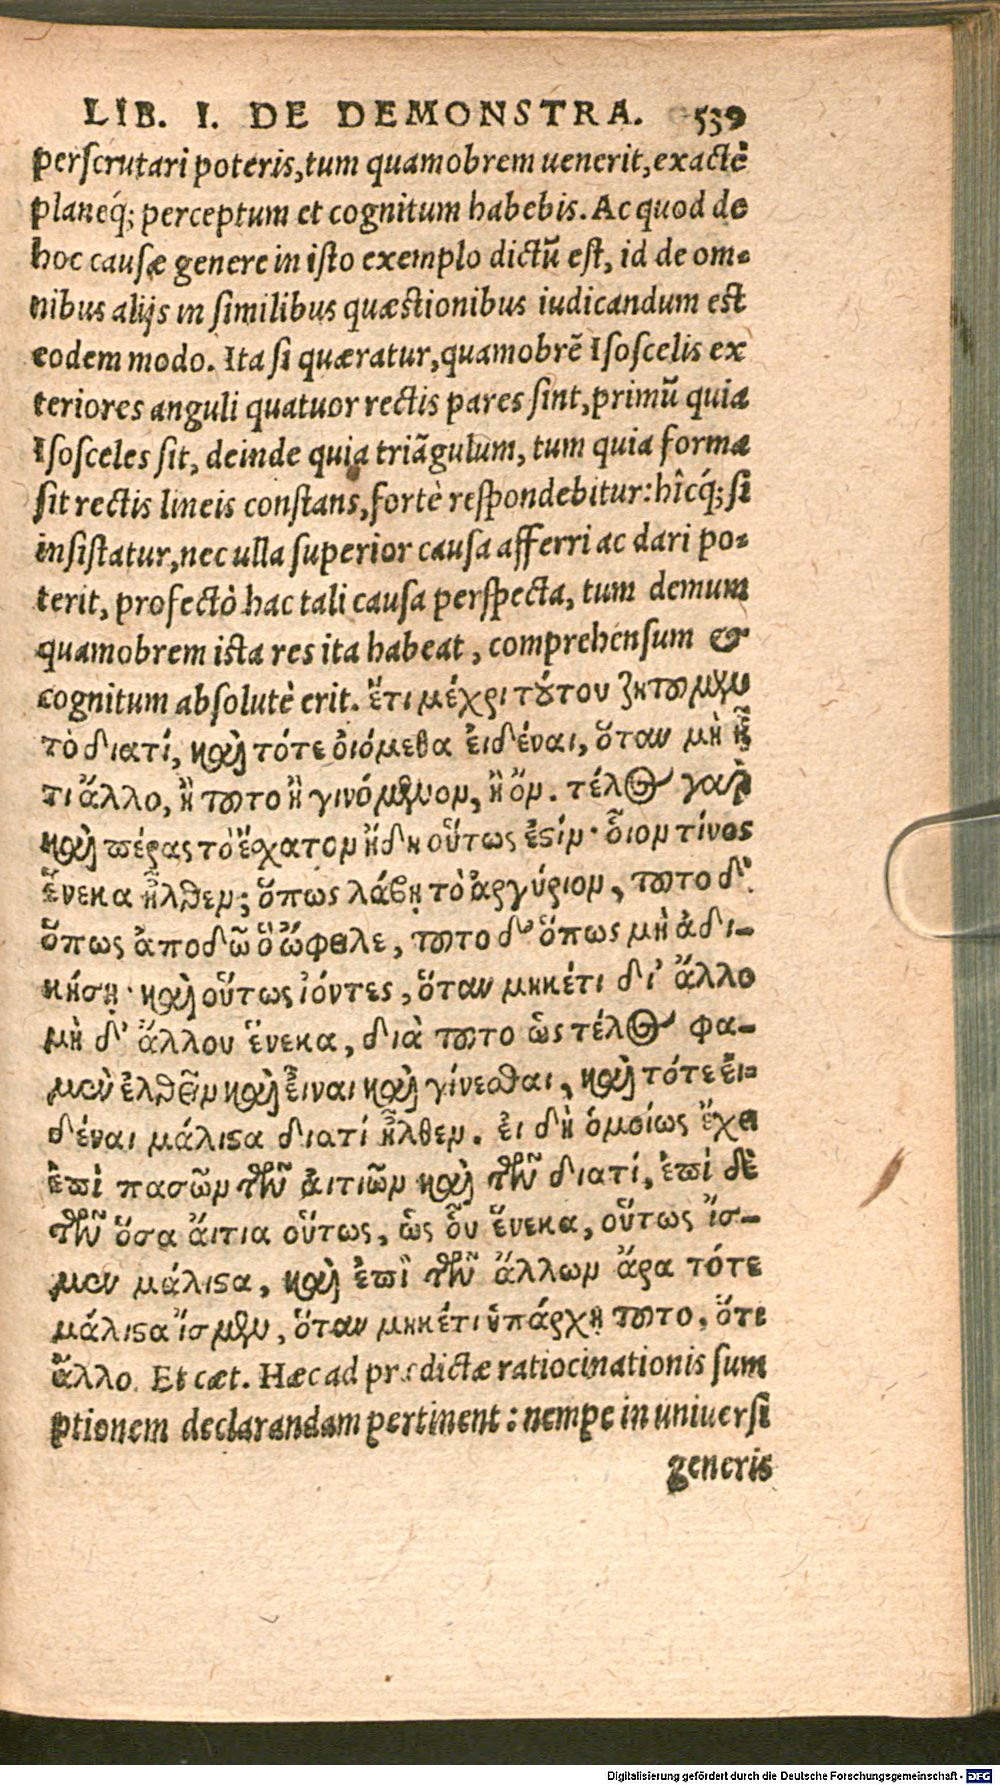 LIB. I. DE DEMONSTRA. 539
perscrutari poteris, tum quamobrem uenerit, exactè
planeq́; perceptum et cognitum habebis. Ac quod de
hoc causæ genere in isto exemplo dictũ est, id de om-
nibus alijs in similibus quæstionibus iudicandum est
eodem modo. Ita si quæratur, quamobrẽ Isoscelis ex
teriores anguli quatuor rectis pares sint, primũ quia
Isosceles sit, deinde quia triãgulum, tum quia forma
sit rectis lineis constans, fortè respondebitur: hîcq́; si
insistatur, nec ulla superior causa afferri ac dari po-
terit, profectò hac tali causa perspecta, tum demum
quamobrem ista res ita habeat, comprehensum &
cognitum absolutè erit. ἔτι μέχρι τούτου ζητοῦμεν
τὸ διατί, καὶ τότε ὀιόμεθα ἐιδέναι, ὅταν μὴ ἦ
τι ἄλλο, ἢ τοῦτο ἢ γινόμενον, ἢ ὄν. τέλος γαρ
καὶ πέρας τὸ ἔσχατον ἤδη οὕτως ἐστίν· ὅιον τίνος
ἕνεκα ἦλθεν; ὅπως λάβῃ τὸ ἀργύριον, τοῦτο δ'
ὅπως ἀποδῶ ὃ ὤφειλε, τοῦτο δ' ὅπως μὴ ἀδι-
κήσῃ· καὶ οὕτως ἰόντες, ὅταν μηκέτι δι' ἄλλο
μὴ δ' ἄλλου ἕνεκα, διὰ τοῦτο ὡς τέλος φα-
μὲν ἐλθεῖν καὶ ἐῖναι καὶ γίνεσθαι, καὶ τότε ἐι-
δέναι μάλιστα διατί ἦλθεν. ἐι δὴ ὁμοίως ἔχει
ἐπὶ πασῶν τῶν ἀιτιῶν καὶ τῶν διατί, ἐπὶ δὲ
τῶν ὅσα ἄιτια οὕτως, ὡς οὗ ἕνεκα, οὕτως ἴσ-
μεν μάλιστα, καὶ ἐπὶ τῶν ἄλλων ἄρα τότε
μάλιστα ἴσμεν, ὅταν μηκέτι ὑπάρχῃ τοῦτο, ὅτι
ἄλλο. Et cæt. Hæc ad prædictæ ratiocinationis sum
ptionem declarandam pertinent: nempe in uniuersi
generis
Digitalisierung gefördert durch die Deutsche Forschungsgemeinschaft - DFG